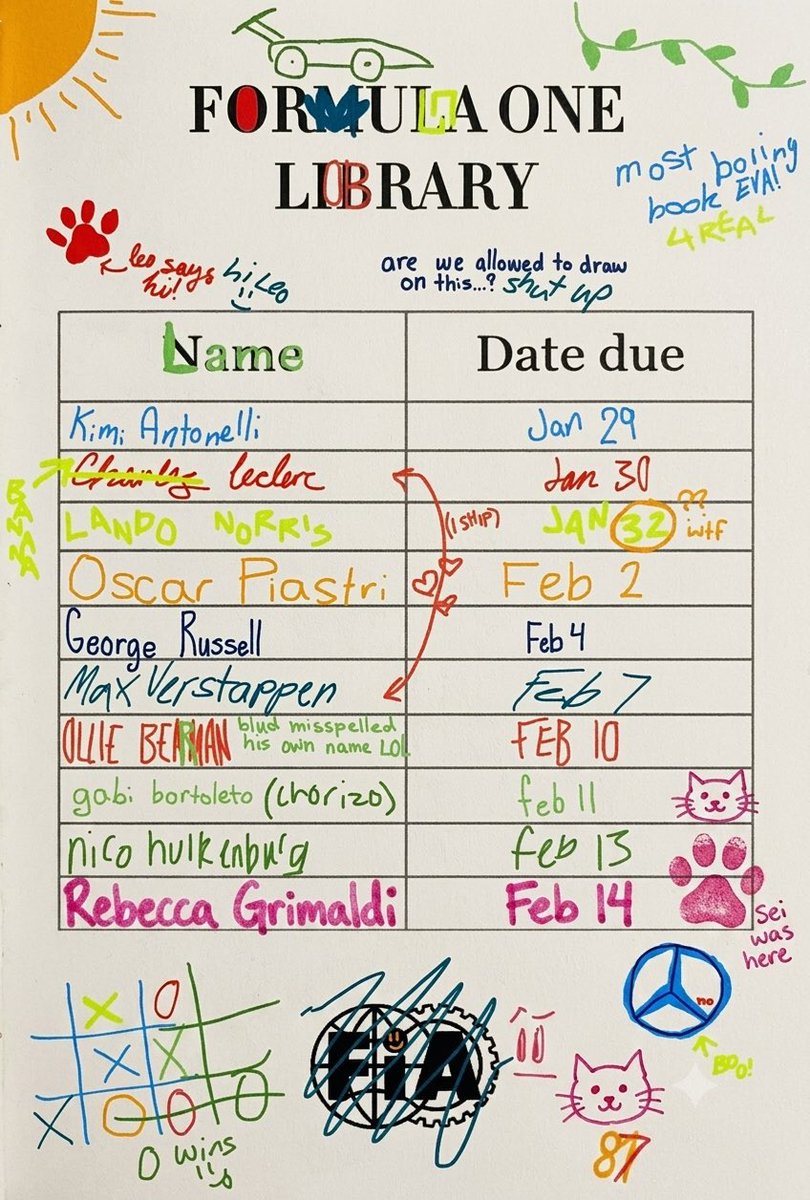 FORMULA ONE
LIBRARY
most boiing
book EVA!
4 REAL
leo says
hi!
hi Leo
are we allowed to draw
on this...? shut up
Name
Date due
Kimi Antonelli
Jan 29
BANANA
Charles leclerc
Jan 30
LANDO NORRIS
JAN 32
??
wtf
(I SHIP)
Oscar Piastri
Feb 2
George Russell
Feb 4
Max Verstappen
Feb 7
OLLIE BEARMAN
blud misspelled
his own name LOL
FEB 10
gabi bortoleto (chorizo)
feb 11
nico hulkenburg
feb 13
Rebecca Grimaldi
Feb 14
Sei
was
here
X O
X X
X O O O
O wins
FiA
no
BOO!
87